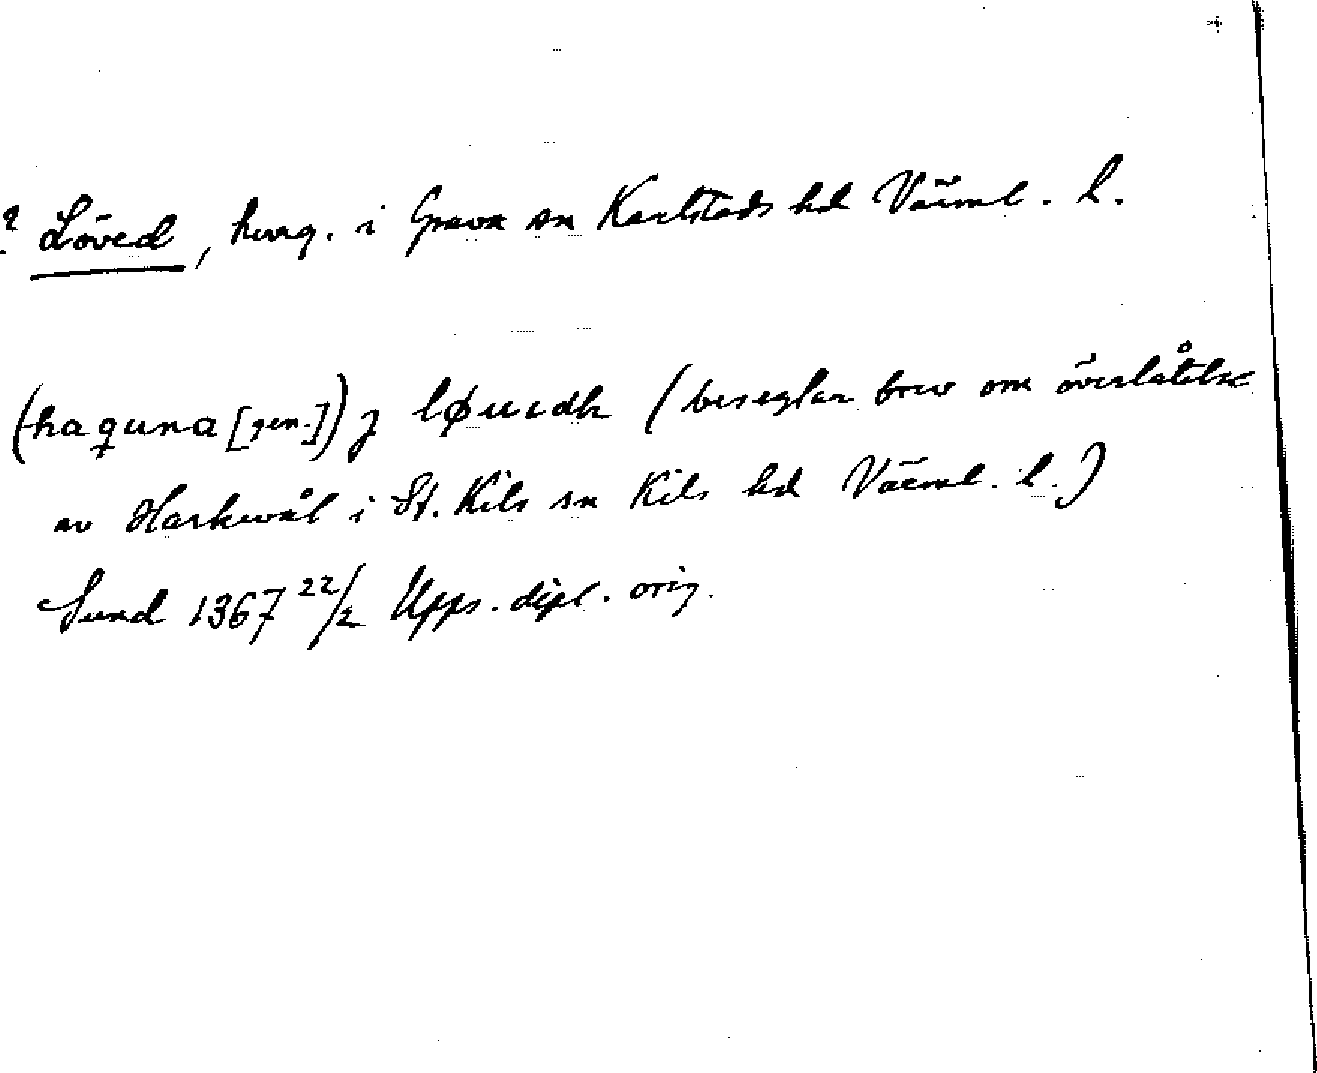 ? Löved, herrg. i Grava sn Karlstads hd Värml. l.
(haquna [gen.]) j løuedh (beseglar brev om överlåtelse
av Harkuvål i St. Kils sn Kils hd Värml. l.)
Sund 1367 22/2 Upps. dipl. orig.